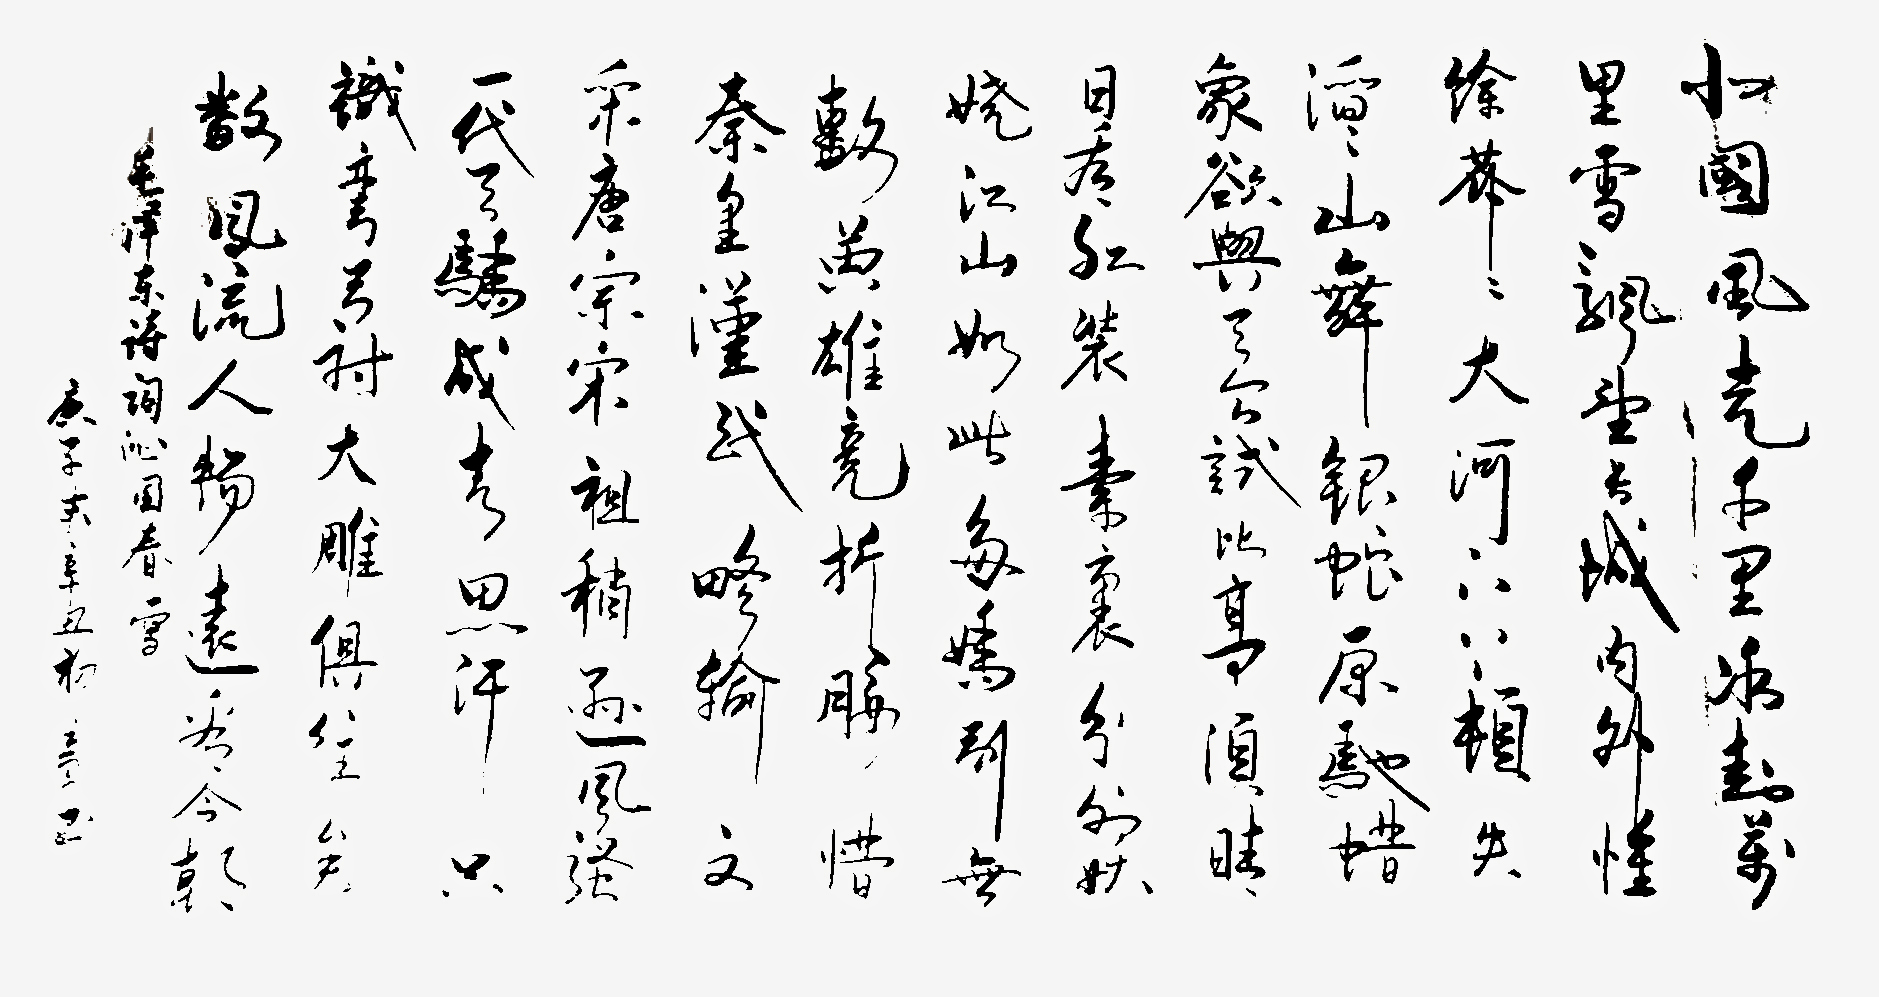 北國風光千里冰封萬
里雪飄望长城内外惟
餘莽〻大河上下頓失
滔〻山舞銀蛇原馳蜡
象欲與天公試比高須晴
日看紅裝素裹分外妖
娆江山如此多嬌引無
數英雄競折腰惜
秦皇漢武略輸文
采唐宗宋祖稍遜風骚
一代天驕成吉思汗只
識彎弓射大雕俱往矣
数風流人物還看今朝
毛泽东诗词沁园春雪
庚子末辛丑初书